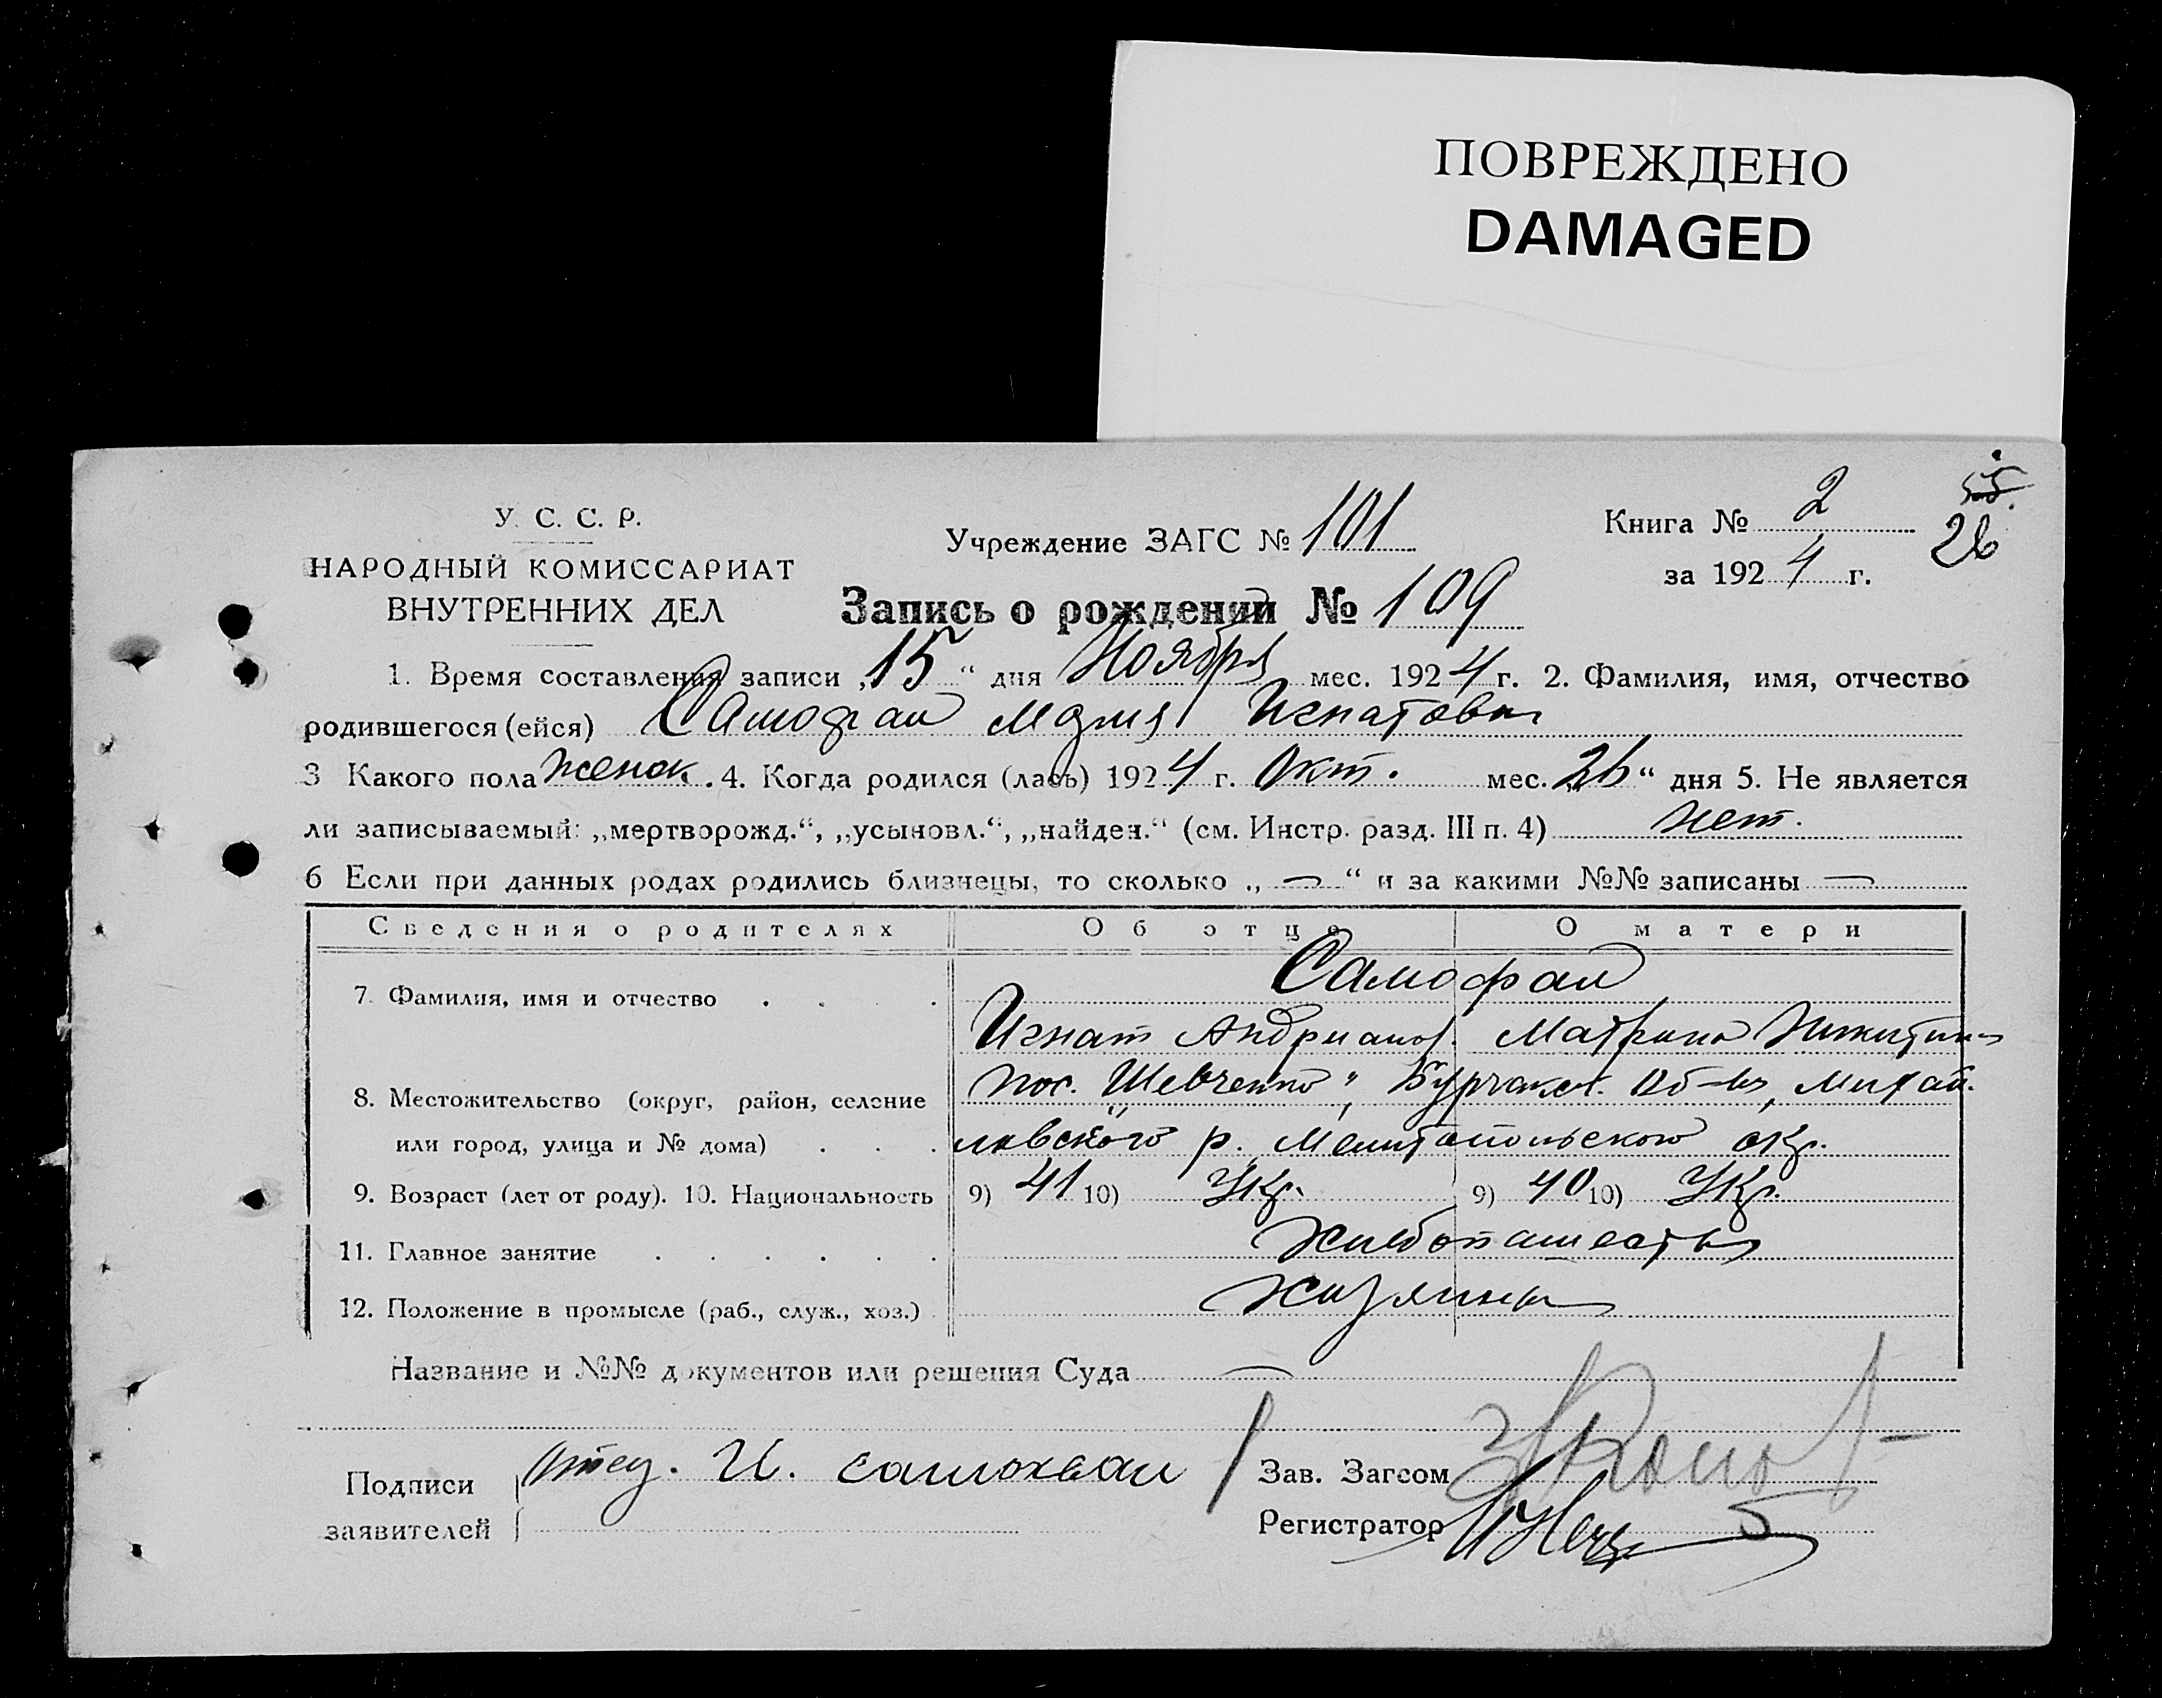 ПОВРЕЖДЕНО
DAMAGED
У. С. С. Р.
НАРОДНЫЙ КОМИССАРИАТ
ВНУТРЕННИХ ДЕЛ
Учреждение ЗАГС № 101
Книга № 2
55.
26
за 1924 г.
Запись о рождении № 109
1. Время составления записи „15“ дня Ноября мес. 1924 г. 2. Фамилия, имя, отчество
родившегося (ейся) Самофал Мария Игнатовна
3 Какого пола женск. 4. Когда родился (лась) 1924 г. Окт. мес. „26“ дня 5. Не является
ли записываемый: „мертворожд.“, „усыновл.“, „найден.“ (см. Инстр. разд. III п. 4) нет.
6 Если при данных родах родились близнецы, то сколько „ — “ и за какими №№ записаны —
Сведения о родителях Об отце О матери
Самофал
7. Фамилия, имя и отчество
Игнат Андрианов. Матрона Никитина
8. Местожительство (округ, район, селение пос. „Шевченко“, Бурчакск. Об-ва, Михай-
или город, улица и № дома) ловского р. Мелитопольского окр.
9. Возраст (лет от роду). 10. Национальность 9) 41 10) Укр. 9) 40 10) Укр.
11. Главное занятие Хлебопашество
12. Положение в промысле (раб., служ., хоз.) Хозяины
Название и №№ документов или решения Суда —
Подписи заявителей отец. И. самохвал
Зав. Загсом
Регистратор